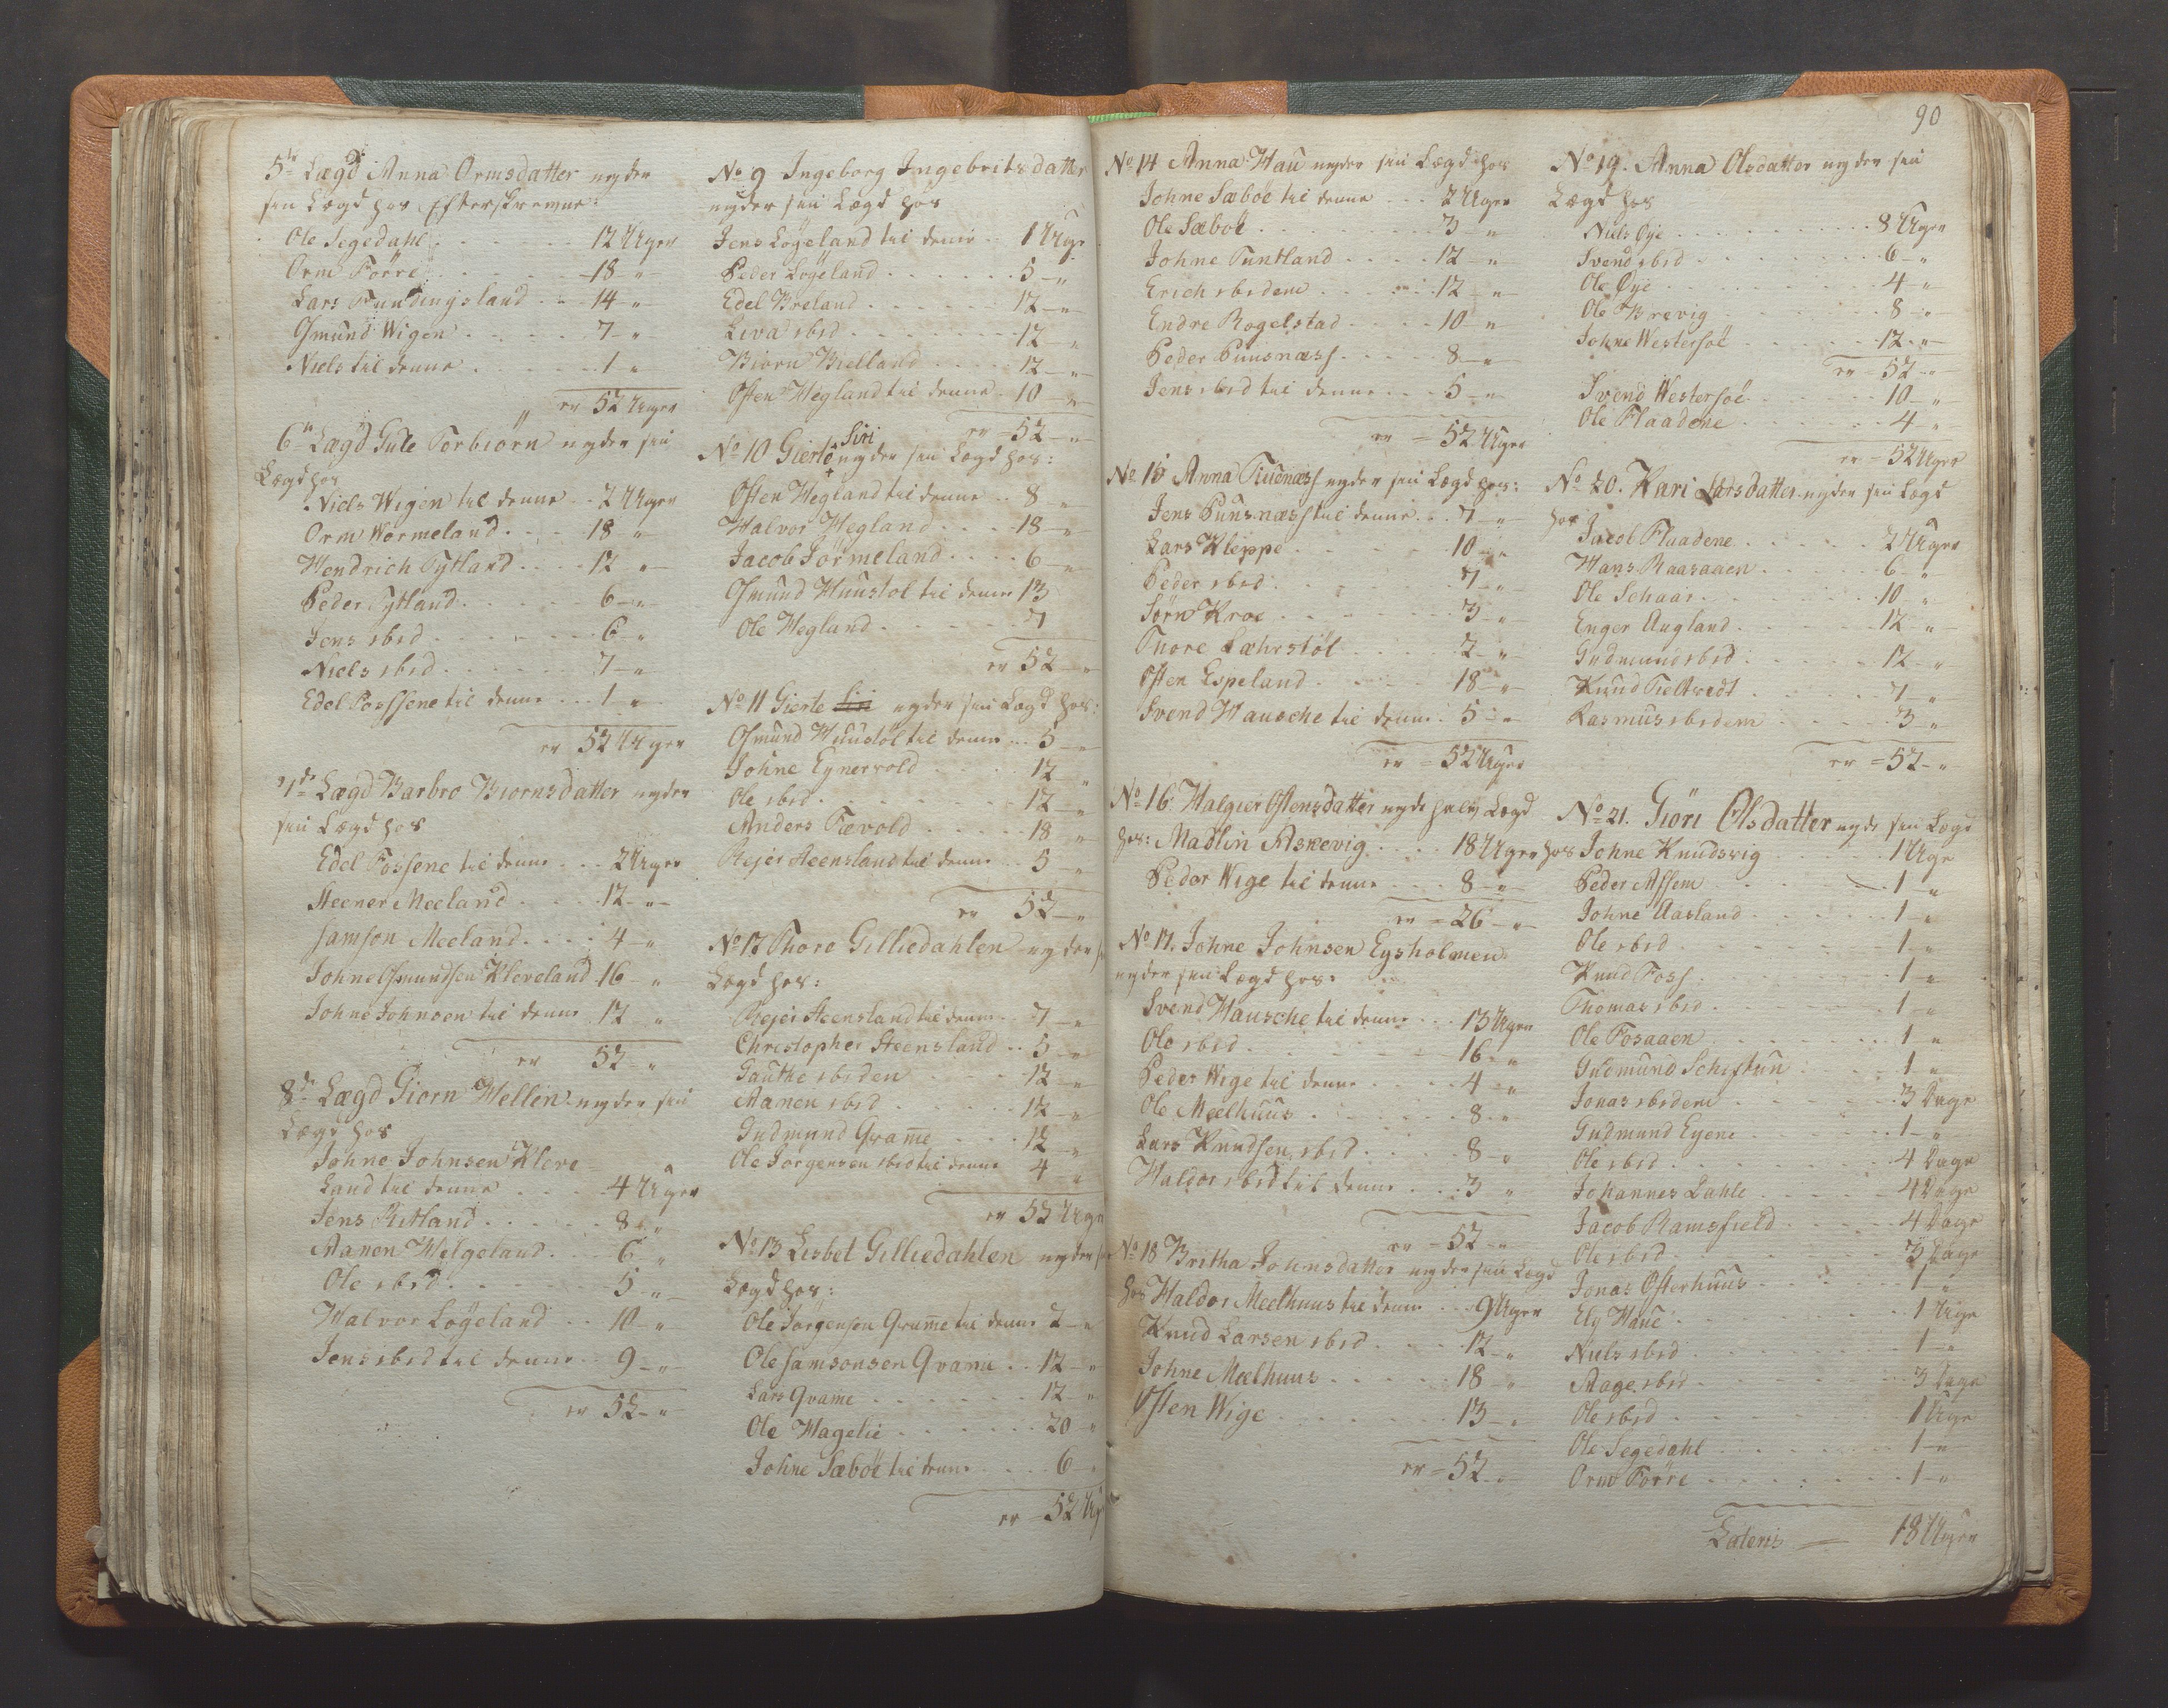 5te Lægd Anna Ormsdatter nyder
sin Lægd hos Efterskrevne:
Ole Segedahl . . . . 12 Uger
Orm Förre . . . . 18 "
Lars Tundingsland . . 14 "
Osmund Wigen . . . . 7 "
Niels til denne . . . . 1 "
er 52 Uger
6te Lægd Gule Torbiörn nyder sin
Lægd hos
Niels Wigen til denne . . 2 Uger
Orm Wormeland . . . 18 "
Hendrich Tytland . . . 12 "
Peder Tytland . . . . 6 "
Jens ibid . . . . 6 "
Niels ibid . . . . 7 "
Edel Fossene til denne . . . 1 "
er 52 Uger
7de Lægd Barbro Biornsdatter nyder
sin Lægd hos
Edel Fossene til denne . . . 2 Uger
Steener Meeland . . . 12 "
Samson Meeland . . . 4 "
Johne Osmundsen Kleveland 16 "
Johne Johnsen til denne 12 "
er 52 "
8de Lægd Giorn Hellen nyder sin
Lægd hos
Johne Johnsen Kleve
Land til denne . . . 4 Uger
Jens Ritland . . . . 8 "
Aanen Helgeland . . 6 "
Ole ibid . . . . 5 "
Halvor Løyeland . . 10 "
Jens ibid til denne . . 9 "
er 52 "
No 9 Ingeborg Ingebritsdatter
nyder sin Lægd hos
Jens Løyeland til denne . . 1 Uge
Peder Løyeland . . . . 5 "
Edel Breland . . . . 12 "
Leva ibid . . . . 12 "
Biorn Bielland . . . . 12 "
Østen Hegland til denne . 10 "
er 52 "
Siri
No 10 Gierte nyder sin Lægd hos:
Østen Hegland til denne . . 8 "
Halvor Hegland . . . . 18 "
Jacob Sørmeland . . . . 6 "
Osmund Huustol til denne 13
Ole Hegland . . . . 7
er 52 "
No 11 Gierte Siri nyder sin Lægd hos:
Osmund Huustøl til denne . . 5 "
Johne Eynervold . . . 12 "
Ole ibid . . . . 12 "
Anders Tævold . . . . 18 "
Rejer Steensland til denne . . 5 "
er 52 "
No 12 Thore Gilliedahlen nyder
Lægd hos:
Rejer Steensland til denne . . 7 "
Christopher Steensland . . 5 "
Gauthe ibiden . . . . 12 "
Aanen ibid . . . . 12 "
Gudmund Qvame . . . 12 "
Ole Jørgensen ibid til denne 4 "
er 52 Uger
No 13 Lisbet Gilliedahlen nyder
Lægd hos:
Ole Jørgensen Qvame til denne 2 "
Ole Samsonsen Qvame . . 12 "
Lars Qvame . . . . 12 "
Ole Hagelie . . . . 20 "
Johne Sæboe til denne . . . 6
er 52 Ug
90
No 14 Anna Hau nyder sin Lægd hos
Johne Sæboe til denne . . . 2 Uger
Ole Sæboe . . . . 3 "
Johne Tuntland . . . . 12 "
Erich ibidem . . . . 12 "
Endre Rogelstad . . . . 10 "
Peder Puusnæss . . . . 8 "
Jens ibid til denne . . . 5 "
er = 52 Uger
No 15 Anna Tiudnæss nyder sin Lægd hos:
Jens Puusnæss til denne . . 7 "
Lars Kleppe . . . . 10 "
Peder ibid . . . . 7 "
Sørn Kroe . . . . 3 "
Thore Læhrstöl . . . . 2 "
Østen Espeland . . . . 18 "
Svend Hausche til denne . 5 "
er = 52 Uger
No 16 Halgier Østensdatter nyde halv Lægd
hos: Madlin Askevig . . . . 18 Uger
Peder Wige til denne . . . 8 "
er = 26 "
No 17. Johne Johnsen Eysholmen
nyder sin Lægd hos:
Svend Hausche til denne . . . 13 Uger
Ole ibid . . . . 16 "
Peder Wige til denne . . . 4 "
Ole Meelhuus . . . . 8 "
Lars Knudsen ibid . . . . 8 "
Haldor ibid til denne . . . 3 "
er = 52 "
No 18 Britha Johnsdatter nyder sin Lægd
hos Haldor Meelhuus til denne . . . 9 Uger
Knud Larsen ibid . . . 12 "
Johne Meelhuus . . . . 18 "
Østen Wige . . . . 13 "
er = 52 "
No 19. Anna Olsdatter nyder sin
Lægd hos
Niels Øye . . . . 8 Uger
Svend ibid . . . . 6 "
Ole Øye . . . . 4 "
Ole Brevig . . . . 8 "
Johne Westersöe . . . . 12 "
er 52 "
Svend Westersöe . . . . 10 "
Ole Flaadene . . . . 4 "
er = 52 Uger
No 20. Kari Larsdatter nyder sin Lægd
hos Jacob Flaadene . . . . 2 Uger
Hans Raasaaen . . . . 6 "
Ole Schaar . . . . 10 "
Enger Augland . . . . 12 "
Gudmund ibid . . . . 12 "
Knud Tieltvedt . . . . 7 "
Rasmus ibidem . . . . 3 "
er = 52 "
No 21. Giöri Olsdatter nyde sin Lægd
hos Johne Knudsvig . . . . 1 Uge
Peder Assem . . . . 1 "
Johne Aasland . . . . 1 "
Ole ibid . . . . 1 "
Knud Foss . . . . 1 "
Thomas ibid . . . . 1 "
Ole Fosaaen . . . . 1 "
Gudmund Schiftun . . . . 1 "
Jonas ibidem . . . . 3 Dage
Gudmund Eyene . . . . 1 "
Ole ibid . . . . 4 Dage
Johannes Dahle . . . . 4 Dage
Jacob Ramsfield . . . . 4 Dage
Ole ibid . . . . 3 Dage
Jonas Østerhuus . . . . 1 "
Ely Haue . . . . 1 Uge
Niels ibid . . . . 1 "
Aage ibid . . . . 3 Dage
Ole ibid . . . . 1 Uge
Ole Segedahl . . . . 1 "
Orm Förre . . . . 1 "
Lateris — 18 Uger